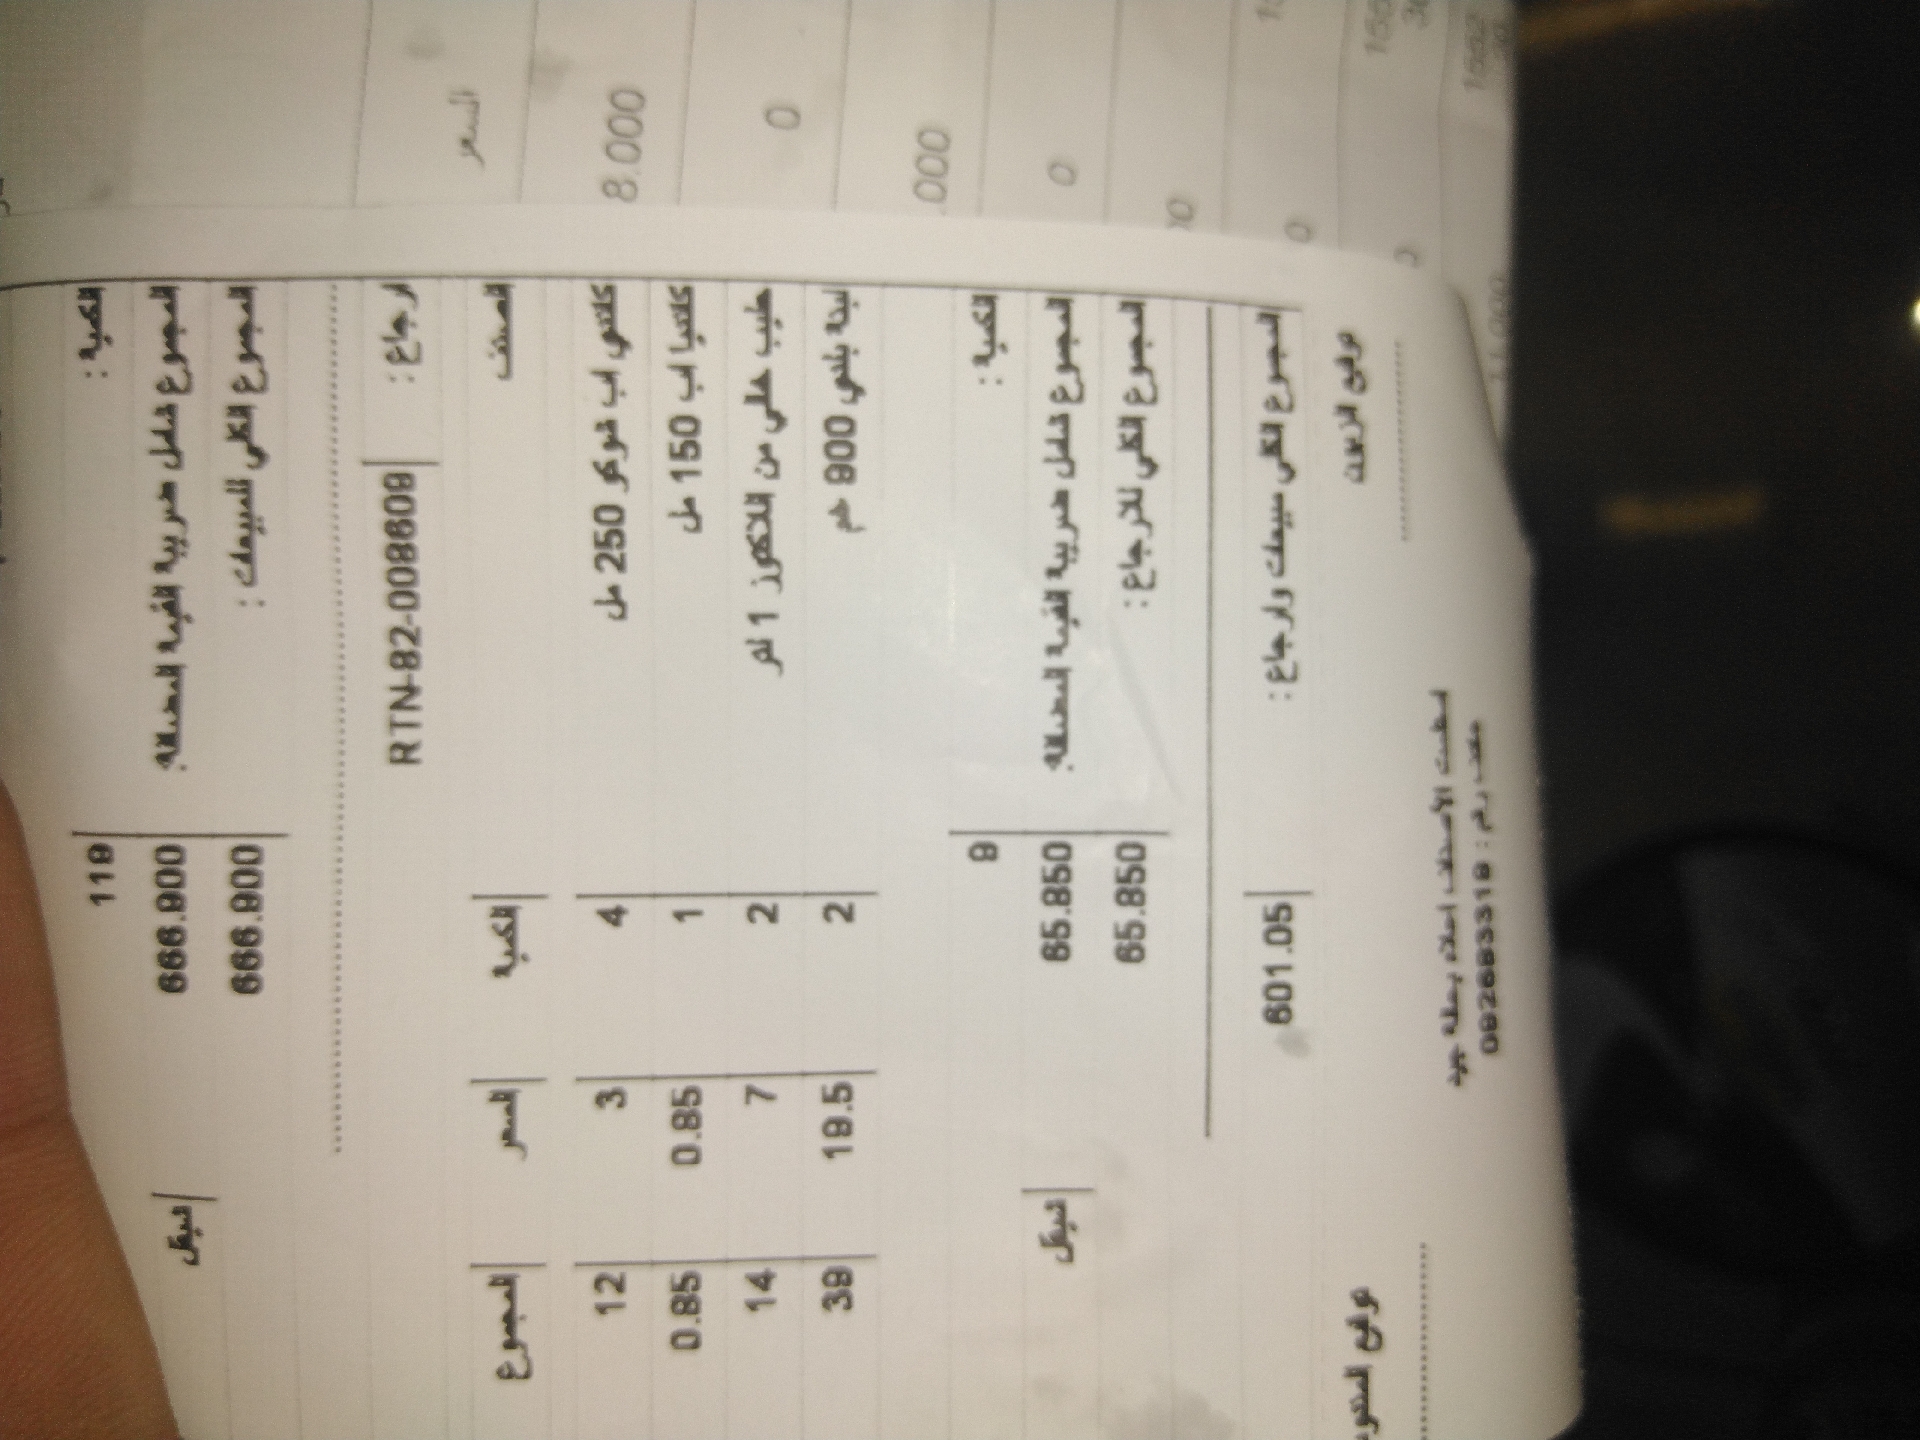 الكمية : 119
المجموع شامل ضريبة القيمة المضافة: 666.900 شيقل
المجموع الكلي للمبيعات : 666.900
ارجاع : RTN-82-008609
الصنف الكمية السعر المجموع
كلاسي اب شوكو 250 مل 4 3 12
150 مل 1 0.85 0.85
حليب خالي من اللاكتوز 1 لتر 2 7 14
لبنة بلدي 900 غم 2 19.5 39
الكمية : 9
المجموع شامل ضريبة القيمة المضافة: 65.850 شيقل
المجموع الكلي للارجاع : 65.850
المجموع الكلي مبيعات وارجاع : 601.05
توقيع الزبون توقيع المندوب
السعر
8.000
0
.000
0